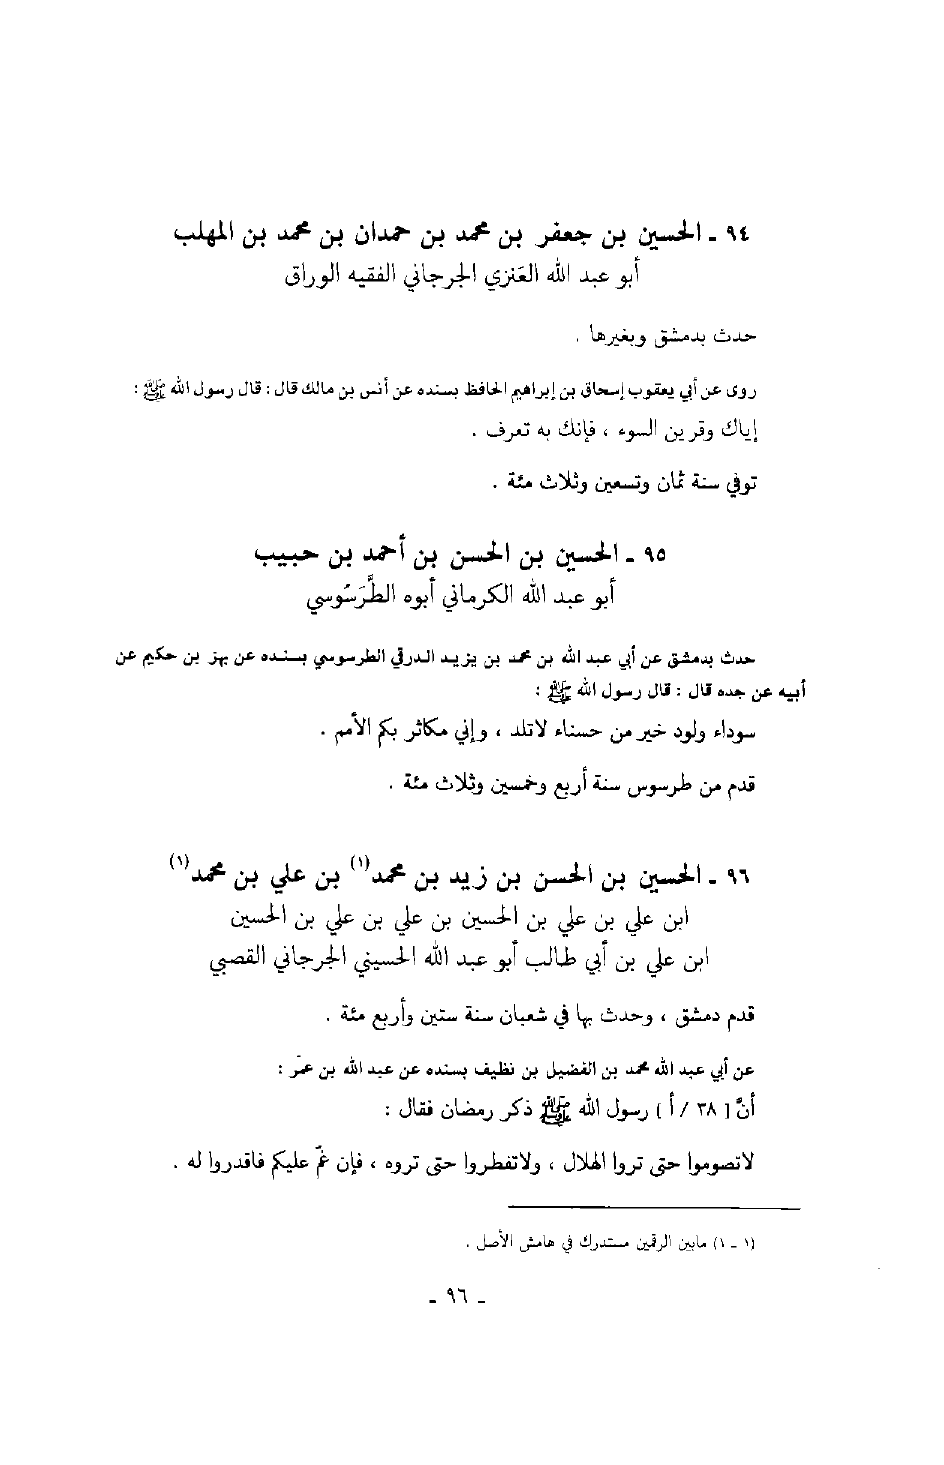 ٩٤ ـ الحسين بن جعفر بن محمد بن حمدان بن محمد بن المهلب
أبو عبد الله العَنزي الجرجاني الفقيه الوراق
حدث بدمشق وبغيرها .
روى عن أبي يعقوب إسحاق بن إبراهيم الحافظ بسنده عن أنس بن مالك قال : قال رسول الله ﷺ :
إياك وقرين السوء ، فإنك به تعرف .
توفي سنة ثمان وتسعين وثلاث مئة .
٩٥ ـ الحسين بن الحسن بن أحمد بن حبيب
أبو عبد الله الكرماني أبوه الطَّرَسُوسي
حدث بدمشق عن أبي عبد الله بن محمد بن يزيد الدرقي الطرسوسي بسنده عن بهز بن حكيم عن
أبيه عن جده قال : قال رسول الله ﷺ :
سوداء ولود خير من حسناء لاتلد ، وإني مكاثر بكم الأمم .
قدم من طرسوس سنة أربع وخمسين وثلاث مئة .
٩٦ ـ الحسين بن الحسن بن زيد بن محمد(١) بن علي بن محمد(١)
ابن علي بن علي بن الحسين بن علي بن علي بن الحسين
ابن علي بن أبي طالب أبو عبد الله الحسيني الجرجاني القصبي
قدم دمشق ، وحدث بها في شعبان سنة ستين وأربع مئة .
عن أبي عبد الله محمد بن الفضيل بن نظيف بسنده عن عبد الله بن عمَر :
أنَّ [ ٣٨ / أ ] رسول الله ﷺ ذكر رمضان فقال :
لاتصوموا حتى تروا الهلال ، ولاتفطروا حتى تروه ، فإن غمّ عليكم فاقدروا له .
(١ ـ ١) مابين الرقمين مستدرك في هامش الأصل .
ـ ٩٦ ـ